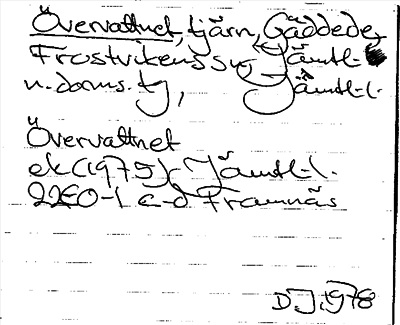 Övervattnet, tjärn, Gäddede,
Frostvikens sn, Jämtl.
n. doms. tg, Jämtl. l.
Övervattnet
ek (1975) Jämtl. l.
22E0-1 c-d Framnäs
DJ. 1978